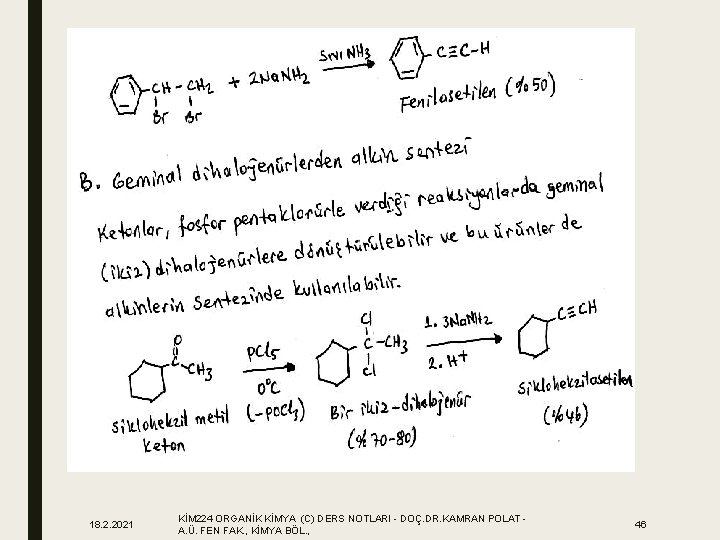 CH - CH2 + 2NaNH2 Sıvı NH3 C≡C-H
Br Br
Fenilasetilen (%50)
B. Geminal dihalojenürlerden alkin sentezi
Ketonlar, fosfor pentaklorürle verdiği reaksiyonlarda geminal
(ikiz) dihalojenürlere dönüştürülebilir ve bu ürünler de
alkinlerin sentezinde kullanılabilir.
O
C CH3
PCl5
0°C
(-POCl3)
Cl
C-CH3
Cl
1. 3NaNH2
2. H+
C≡CH
Siklohekzil metil
keton
Bir ikiz-dihalojenür
(%70-80)
Siklohekzilasetilen
(%46)
18.2.2021
KİM224 ORGANİK KİMYA (C) DERS NOTLARI - DOÇ.DR.KAMRAN POLAT -
A.Ü. FEN FAK., KİMYA BÖL.,
46